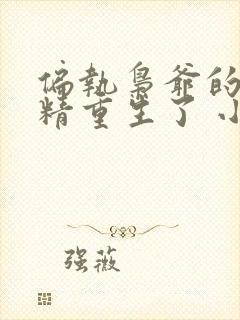 偏執梟爺的
精重生了小
强薇